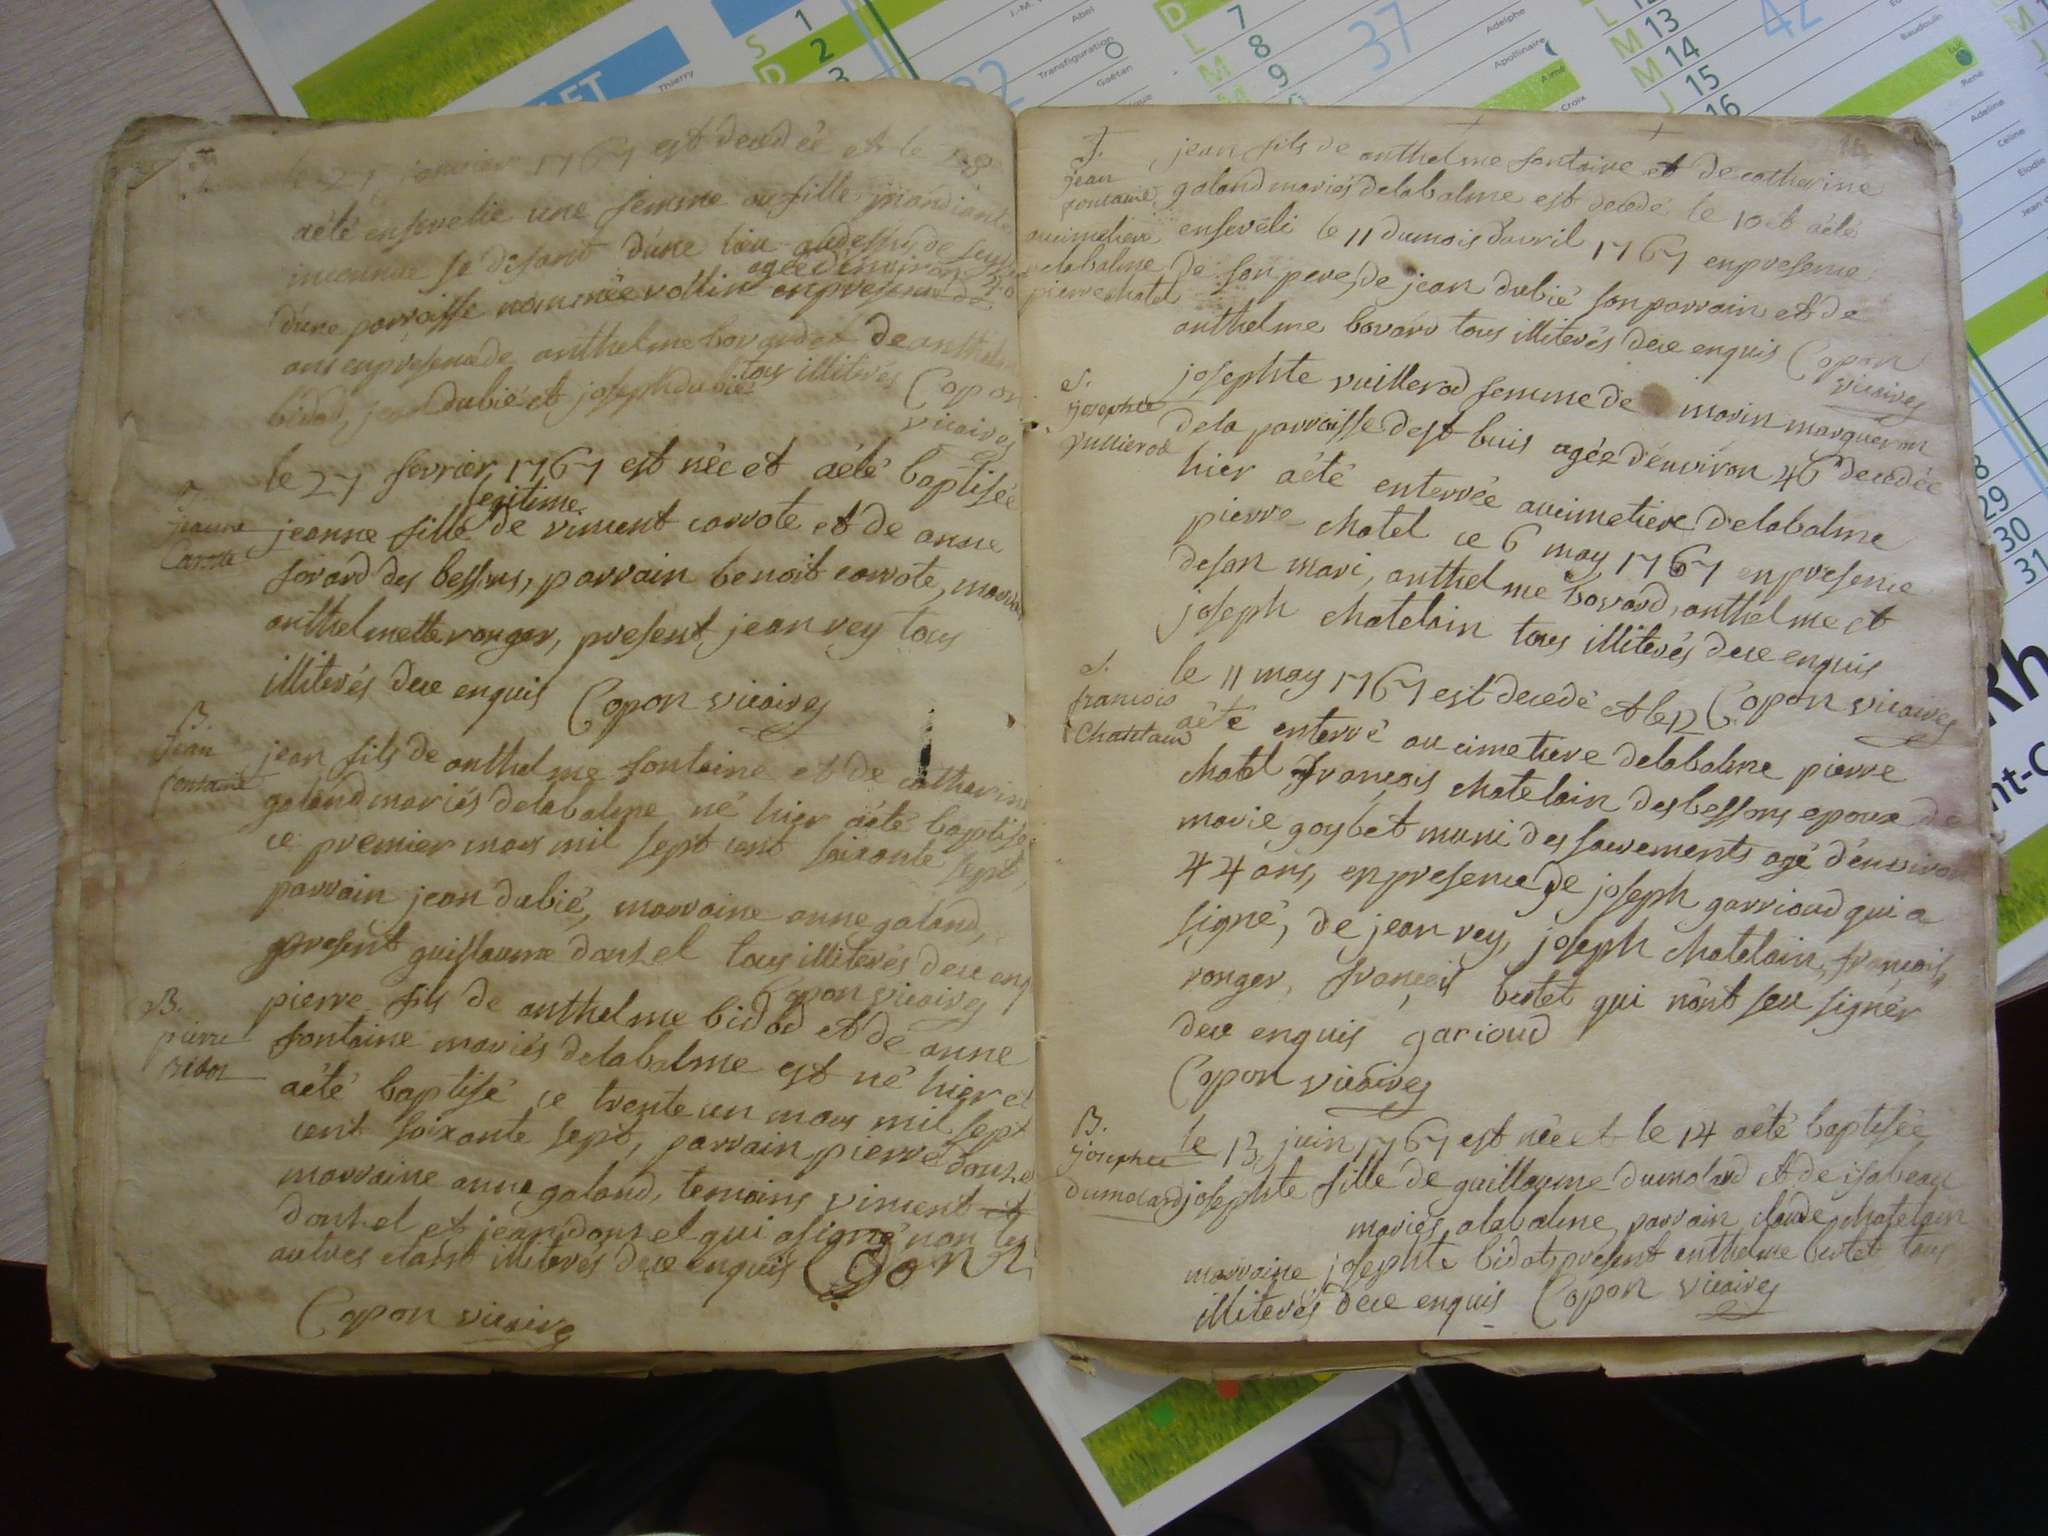 S 1
D 2
3
Thierry
J.-M.
Abel
Transfiguration
Gaétan
32
D 7
L 8
M 9
37
Adelphe
Apollinaire
Aimé
Croix
L 13
M 14
M 15
J 16
42
Baudouin
René
Adeline
Céline
Elodie
29
30
31
Rh
nt-C
le 27 janvier 1767 est decedée et le 28
aété ensevelie une femme ou fille mandiante
inconnue se disant d'une lieu audessus de
d'une parroisse nommée rollin enpresence de
agée d'environ 40
ans enpresence de anthelme bovard et de anthelme
bidod, jean dubié et joseph dubié tous illiterés Copon
vicaires
jeanne
Carrote
le 27 fevrier 1767 est née et aété baptisée
jeanne fille legitime de vincent carrote et de anne
sorard des bessons, parrain benoit carrote, marraine
anthelmette ronger, present jean rey tous
illiterés deue enquis Copon vicaires
B.
jean
fontaine
jean fils de anthelme fontaine et de catherine
galand mariés delabalme né hier aété baptisé
ce premier mars mil sept cent soixante sept,
parrain jean dubié, marraine anne galand,
present guillaume donzel tous illiterés deue enq
Copon vicaires
B.
pierre
bidod
pierre fils de anthelme bidod et de anne
fontaine mariés delabalme est né hier et
aété baptisé ce trente un mars mil sept
cent soixante sept, parrain pierre donzel
marraine anne galand, temoins vincent
donzel et jean donzel qui a signé non les
autres etant illiterés deue enquis Donz
Copon vicaire
S.
jean
fontaine
aucimetiere
delabalme
pierre chatel
jean fils de anthelme fontaine et de catherine
galand mariés delabalme est decedé le 10 et aété
enseveli le 11 dumois d'avril 1767 enpresence
de son pere, de jean dubié son parrain et de
anthelme bovard tous illiterés deue enquis Copon
vicaires
S.
josephte
vullierod
josephte vuillerod femme de marin marqueron
dela parroisse de st buis agée d'environ 46 decedée
hier aété enterrée aucimetiere delabalme
pierre chatel ce 6 may 1767 enpresence
deson mari, anthelme bovard, anthelme et
joseph chatelain tous illiterés deue enquis
Copon vicaires
S.
francois
Chatelain
le 11 may 1767 est decedé et le 12
aété enterré au cimetiere delabalme pierre
chatel françois chatelain des bessons epoux de
marie goybet muni des sacrements agé d'environ
44 ans, enpresence de joseph garrioud qui a
signé, de jean rey, joseph chatelain, françois
ronger, françois bertet qui n'ont seu signér
deue enquis garioud
Copon vicaires
B.
josephte
dumolard
le 13 juin 1767 est née et le 14 aété baptisée
josephte fille de guillaume dumolard et de isabeau
mariés alabalme, parrain claude chatelain
marraine josephte bidod, présent anthelme bertet tous
illiterés deue enquis Copon vicaires